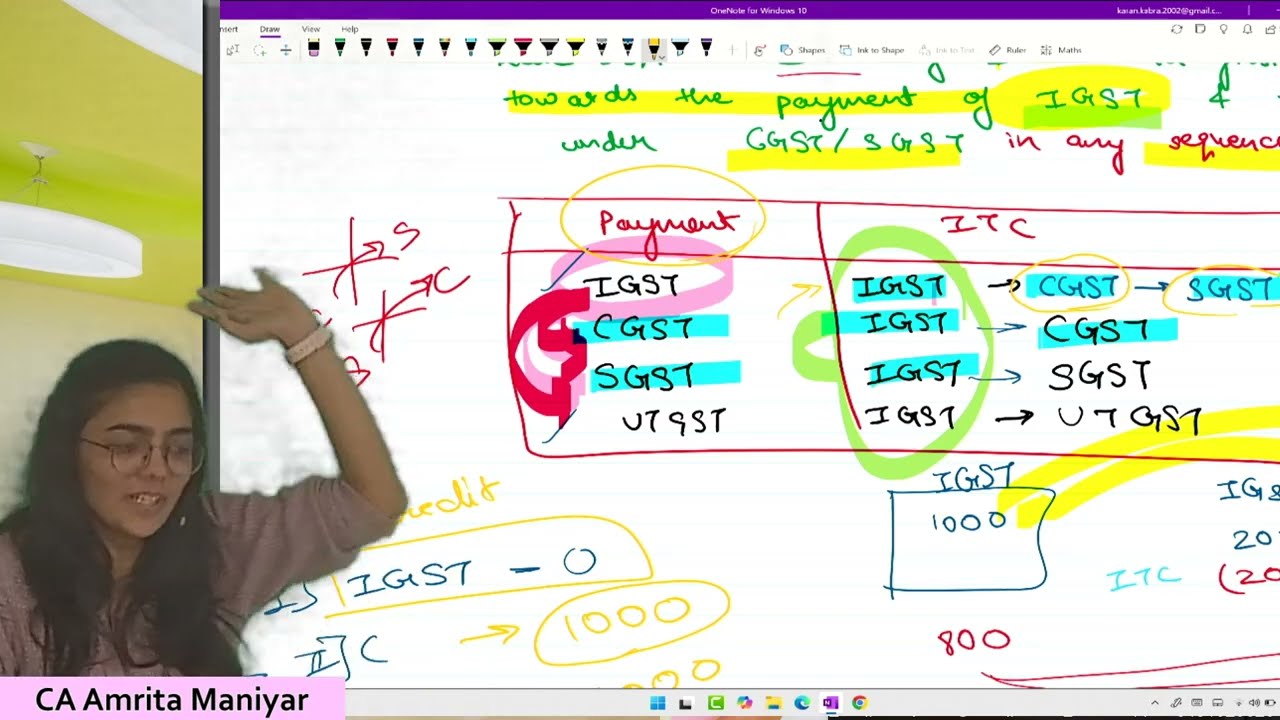 OneNote for Windows 10
karan.kabra.2002@gmail.c...
nsert Draw View Help
Shapes Ink to Shape Ink to Text Ruler Maths
towards the payment of IGST &
under CGST/SGST in any sequence
Payment ITC
IGST IGST → CGST → SGST
CGST IGST → CGST
SGST IGST → SGST
UTGST IGST → UTGST
S
C
redit
IGST - 0
II] C → 1000
IGST
1000
IGS
20
ITC (20
800
CA Amrita Maniyar